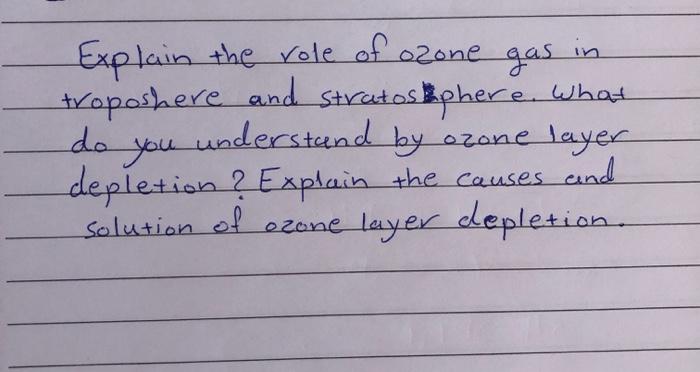 Explain the role of ozone gas in
troposhere and stratosphere. What
do you understand by ozone layer
depletion? Explain the causes and
solution of ozone layer depletion.